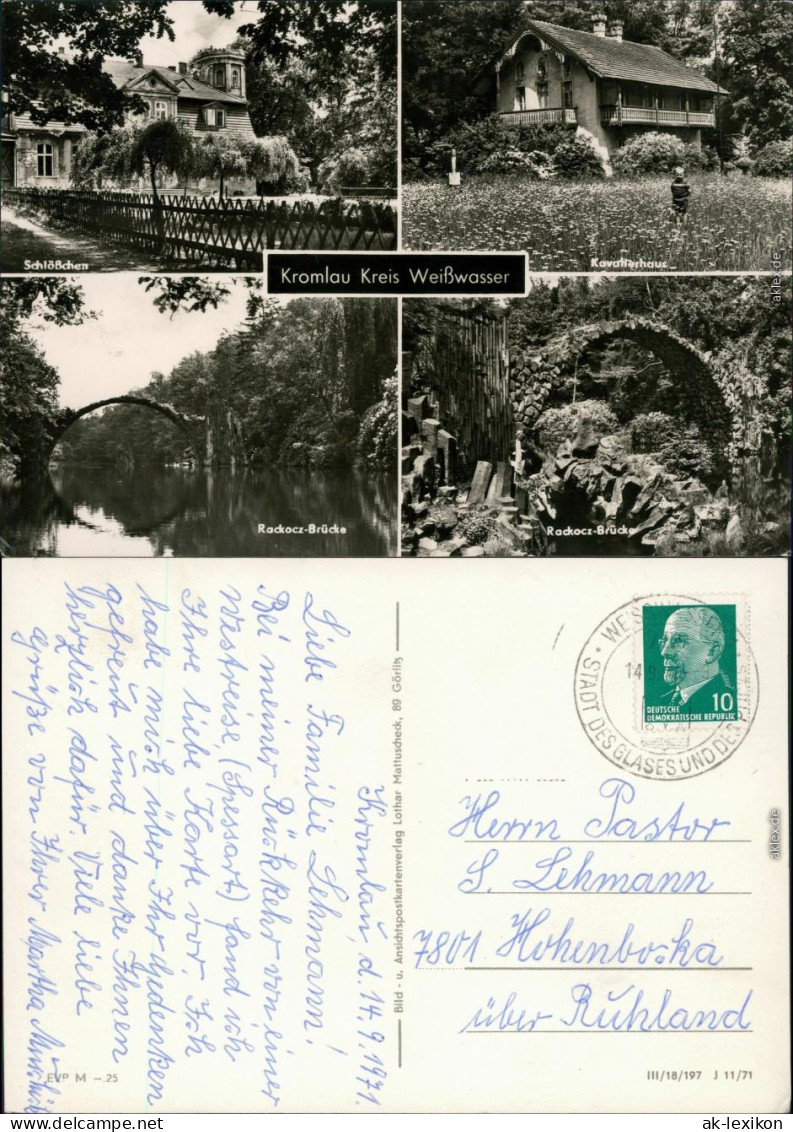 Schlößchen
Kavalierhaus
Kromlau Kreis Weißwasser
Rackocz-Brücke
Rackocz-Brücke
aklex.de
Kromlau, d. 14.9.1971.
Liebe Familie Lehmann!
Bei meiner Rückkehr von einer
Westreise, (Spessart) fand ich
Ihre liebe Karte vor. Ich
habe mich über Ihr Gedenken
gefreut und danke Ihnen
herzlich dafür. Viele liebe
Grüße von Ihrer Martha
EVP M –.25
Bild - u. Ansichtspostkartenverlag Lothar Mattuscheck, 89 Görlitz
STADT DES GLASES UND DER
14.9
10
DEUTSCHE
DEMOKRATISCHE REPUBLIK
Herrn Pastor
S. Lehmann
7801 Hohenbocka
über Ruhland
III/18/197 J 11/71
aklex.de
ak-lexikon